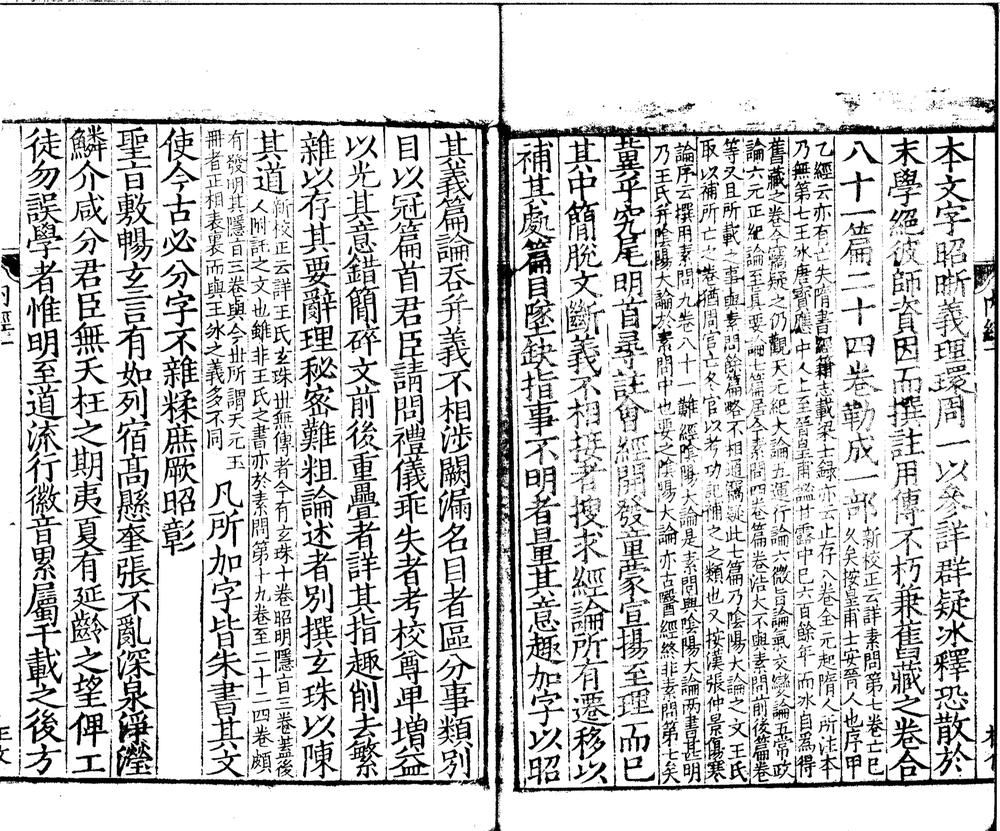 本文字昭晰義理環周一以參詳群疑冰釋恐散於
末學絕彼師資因而撰註用傳不朽兼舊藏之卷合
八十一篇二十四卷勒成一部
新校正云詳素問第七卷亡已
久矣按皇甫士安晉人也序甲
乙經云亦有亡失隋書經籍志載梁七錄亦云止存八卷全元起隋人所注本
乃無第七王冰唐寶應中人上至晉皇甫謐甘露中已六百餘年而冰自為得
舊藏之卷今竊疑之仍觀天元紀大論五運行論六微旨論氣交變論五常政
論六元正紀論至真要論七篇居今素問四卷篇卷浩大不與素問前後篇卷
等又且所載之事與素問餘篇略不相通竊疑此七篇乃陰陽大論之文王氏
取以補所亡之卷猶周官亡冬官以考功記補之之類也又按漢張仲景傷寒
論序云撰用素問九卷八十一難經陰陽大論是素問與陰陽大論兩書甚明
乃王氏并陰陽大論於素問中也要之陰陽大論亦古醫經終非素問第七矣
兾乎究尾明首尋註會經開發童蒙宣揚至理而已
其中簡脫文斷義不相接者搜求經論所有遷移以
補其處篇目墜缺指事不明者量其意趣加字以昭
其義篇論吞并義不相涉闕漏名目者區分事類別
目以冠篇首君臣請問禮儀乖失者考校尊卑增益
以光其意錯簡碎文前後重疊者詳其指趣削去繁
雜以存其要辭理秘密難粗論述者別撰玄珠以陳
其道
新校正云詳王氏玄珠世無傳者今有玄珠十卷昭明隱旨三卷蓋後
人附託之文也雖非王氏之書亦於素問第十九卷至二十二四卷頗
有發明其隱旨三卷與今世所謂天元玉
冊者正相表裏而與王冰之義多不同
凡所加字皆朱書其文
使今古必分字不雜糅庶厥昭彰
聖旨敷暢玄言有如列宿高懸奎張不亂深泉淨瀅
鱗介咸分君臣無夭枉之期夷夏有延齡之望俾工
徒勿誤學者惟明至道流行徽音累屬千載之後方